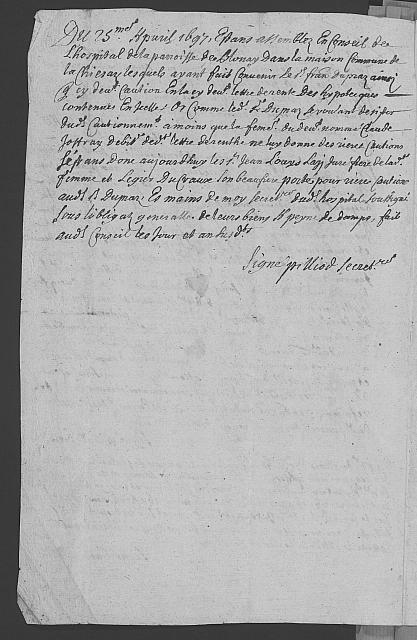 Du 25.me Apuril 1697. Estans assemblez En Conseil de
L'hospital de la parroisse de Blonay dans la maison Commune de
la Chiesaz, lesquels ayant fait Convenir Le Sr. fran: Dumaz ainsi
q'cy devt. Caution En la cy devt. lettre de rente Des hypotecques
contenues En icelle Or Comme led. Sr. Dumaz se voulant desister
dud. Cautionnemt. à moins que la feme. du devt. nommé Claude
Joffray debit. ded. lettre de renthe ne luy donne des riere Cautions
Estans donc aujourdhuy les Srs. Jean Louys frere de la d.
femme et Legier Ducraux son beaufrere portez pour riere Cautions
aud. Sr. Dumaz Es mains de moy secret.re dud. hospital soussigné
sous l'obligaõn generalle de leurs biens A peyne de damps, fait
aud. Conseil les Jour et an susd.ts
Signé secret.re